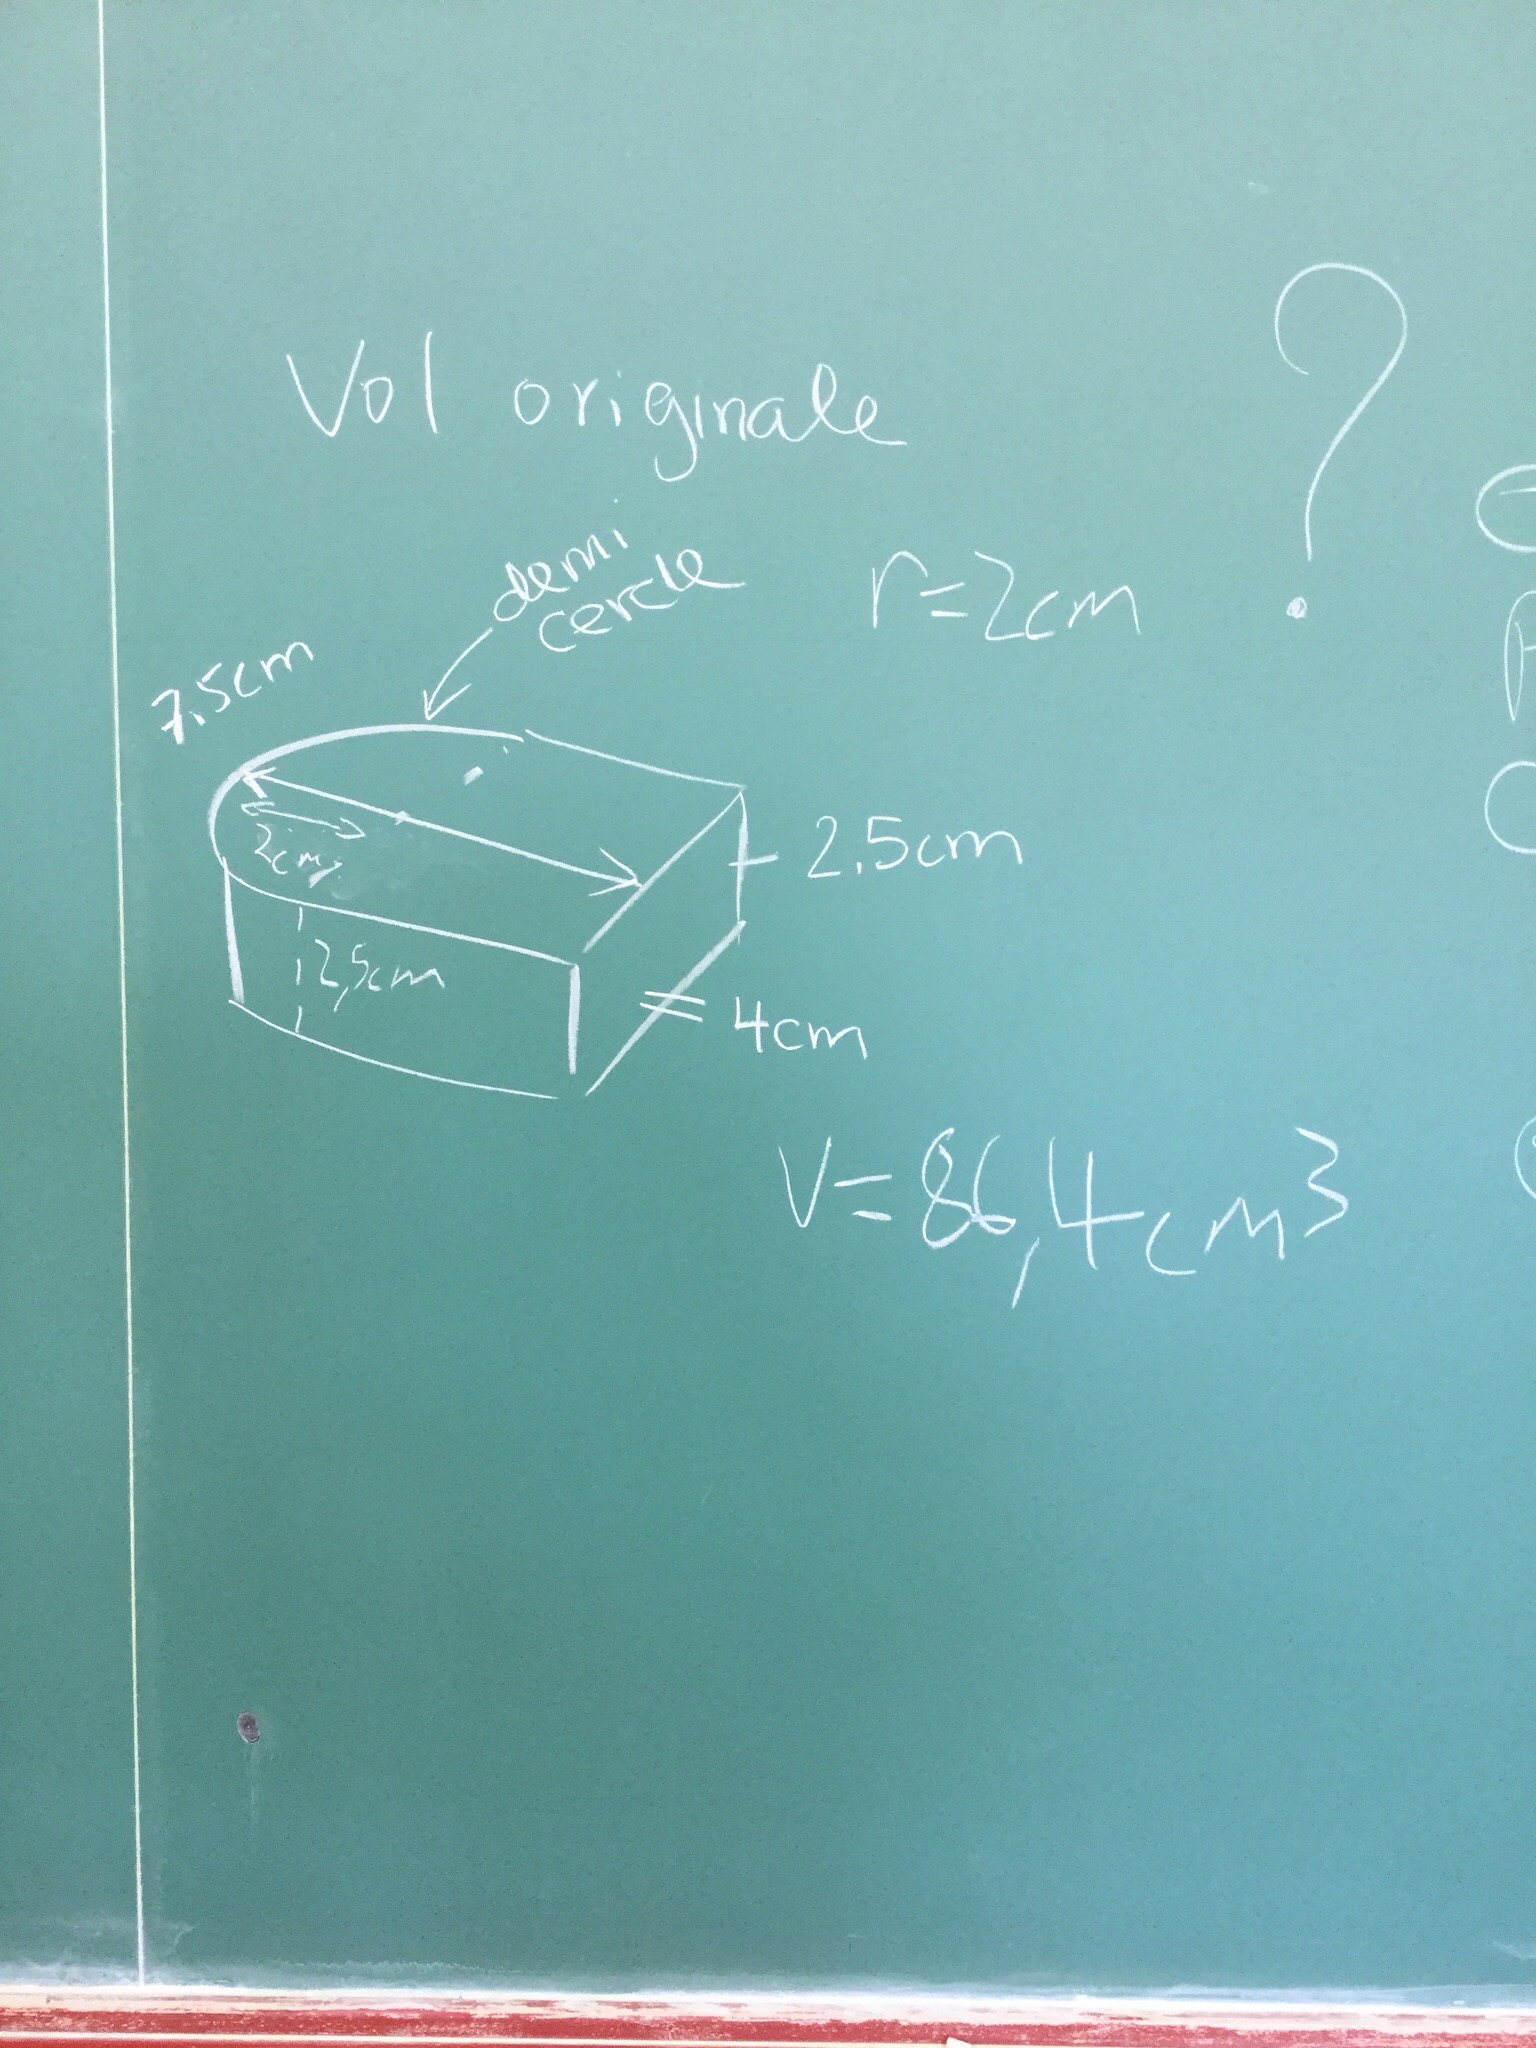 Vol originale
?
demi
cercle
r=2cm
7,5cm
2cm
2,5cm
2,5cm
4cm
V=86,4cm³